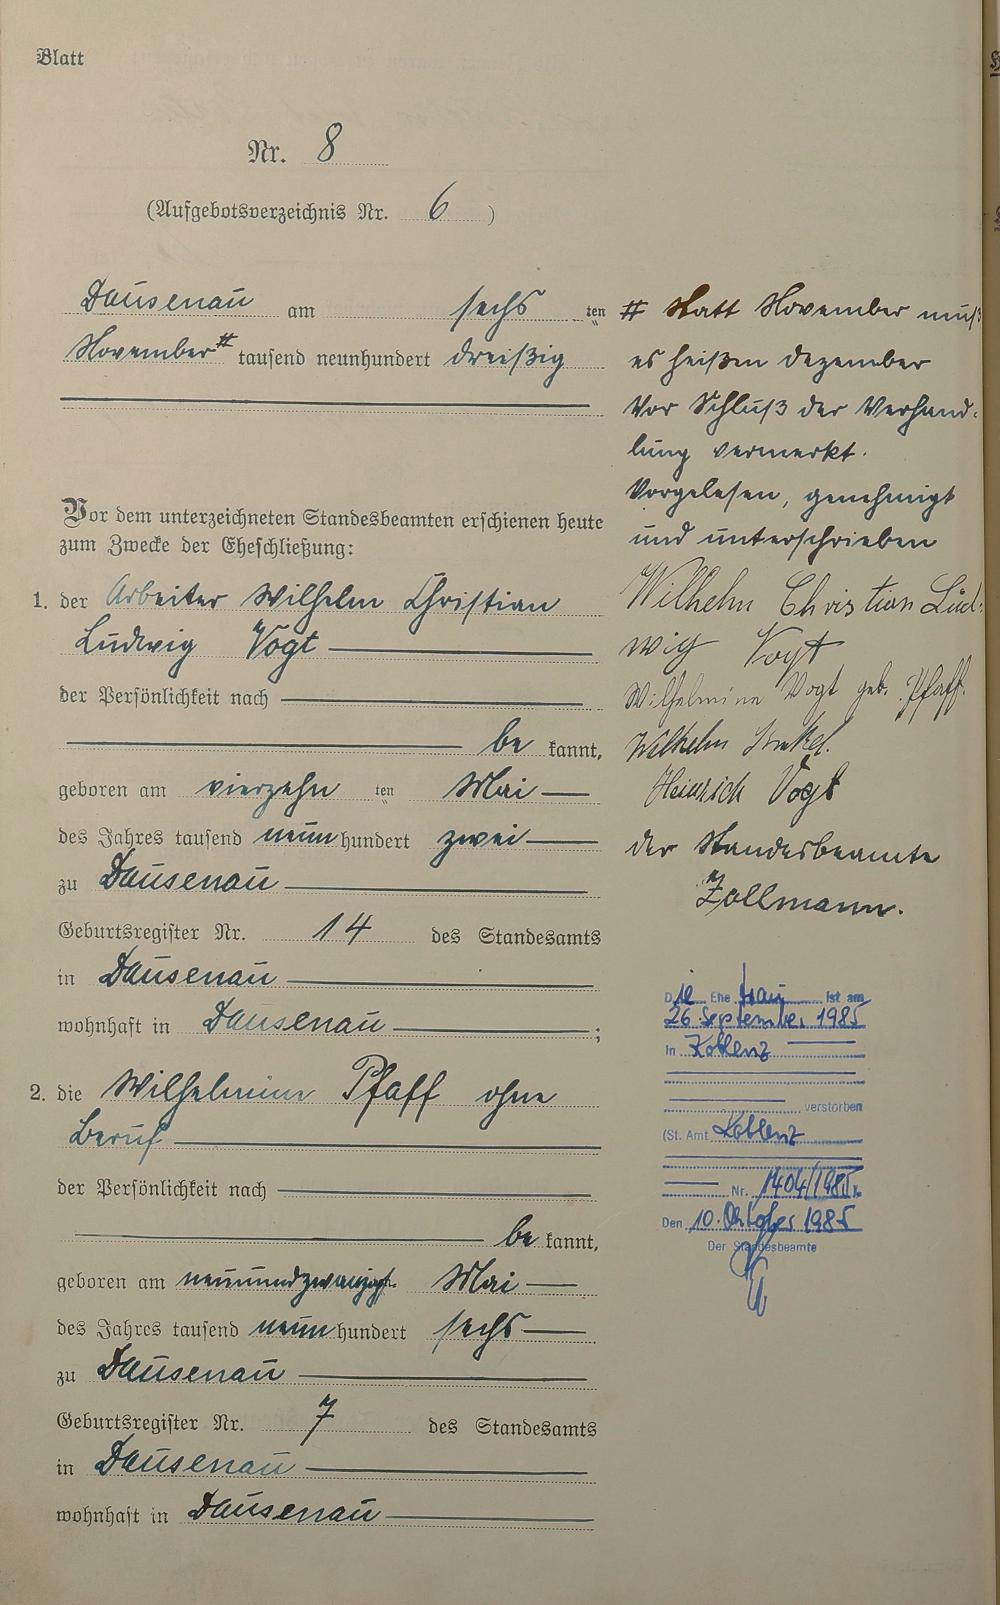 Blatt
Nr. 8
(Aufgebotsverzeichnis Nr. 6)
Dausenau am sechs ten
November # tausend neunhundert dreißig
Vor dem unterzeichneten Standesbeamten erschienen heute
zum Zwecke der Eheschließung:
1. der Arbeiter Wilhelm Christian
Ludwig Vogt
der Persönlichkeit nach
be kannt,
geboren am vierzehn ten Mai
des Jahres tausend neun hundert zwei
zu Dausenau
Geburtsregister Nr. 14 des Standesamts
in Dausenau
wohnhaft in Dausenau ;
2. die Wilhelmine Pfaff ohne
Beruf
der Persönlichkeit nach
be kannt,
geboren am neunundzwanzigst. Mai
des Jahres tausend neun hundert sechs
zu Dausenau
Geburtsregister Nr. 7 des Standesamts
in Dausenau
wohnhaft in Dausenau
# Statt November muß
es heißen Dezember
Vor Schluß der Verhand-
lung vermerkt.
Vorgelesen, genehmigt
und unterschrieben
Wilhelm Christian Lud-
wig Vogt
Wilhelmine Vogt geb. Pfaff.
Wilhelm
Heinrich Vogt
der Standesbeamte
Zollmann.
Die Ehe frau ist am
26. September 1985
in Koblenz
verstorben
(St. Amt Koblenz
Nr. 1404/1985).
Den 10. Oktober 1985
Der Standesbeamte